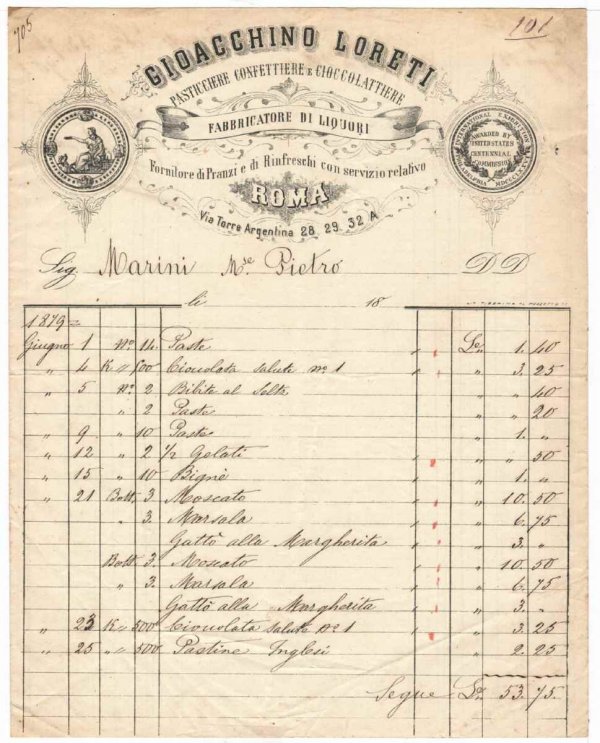 705
201
GIOACCHINO LORETI
PASTICCIERE CONFETTIERE E CIOCCOLATTIERE
FABBRICATORE DI LIQUORI
Fornitore di Pranzi e di Rinfreschi con servizio relativo
ROMA
Via Torre Argentina 28. 29. 32 A
INTERNATIONAL EXHIBITION
PHILADELPHIA MDCCCLXXVI
AWARDED BY
UNITED STATES
CENTENNIAL
COMMISSION
Sig. Marini Mse Pietro DD
li 18
1879
Giugno 1 No. 14 Paste „ Le 1. 40
„ 4 K „ 500 Cioccolata salute No 1 „ „ 3. 25
„ 5 No. 2 Bibite al Seltz „ „ „ 40
„ 2 Paste „ „ „ 20
„ 9 „ 10 Paste „ „ 1. „
„ 12 „ 2 1/2 Gelati „ „ „ 50
„ 15 „ 10 Bignè „ „ 1. „
„ 21 Bott. 3 Moscato „ „ 10. 50
„ 3. Marsala „ „ 6. 75
Gattò alla Margherita „ „ 3. „
Bott. 3. Moscato „ „ 10. 50
„ 3. Marsala „ „ 6. 75
Gattò alla Margherita „ „ 3. „
„ 23 K „ 500 Cioccolata salute No 1 „ „ 3. 25
„ 25 „ „ 500 Pastine Inglesi „ „ 2. 25
Segue Le 53. 75.